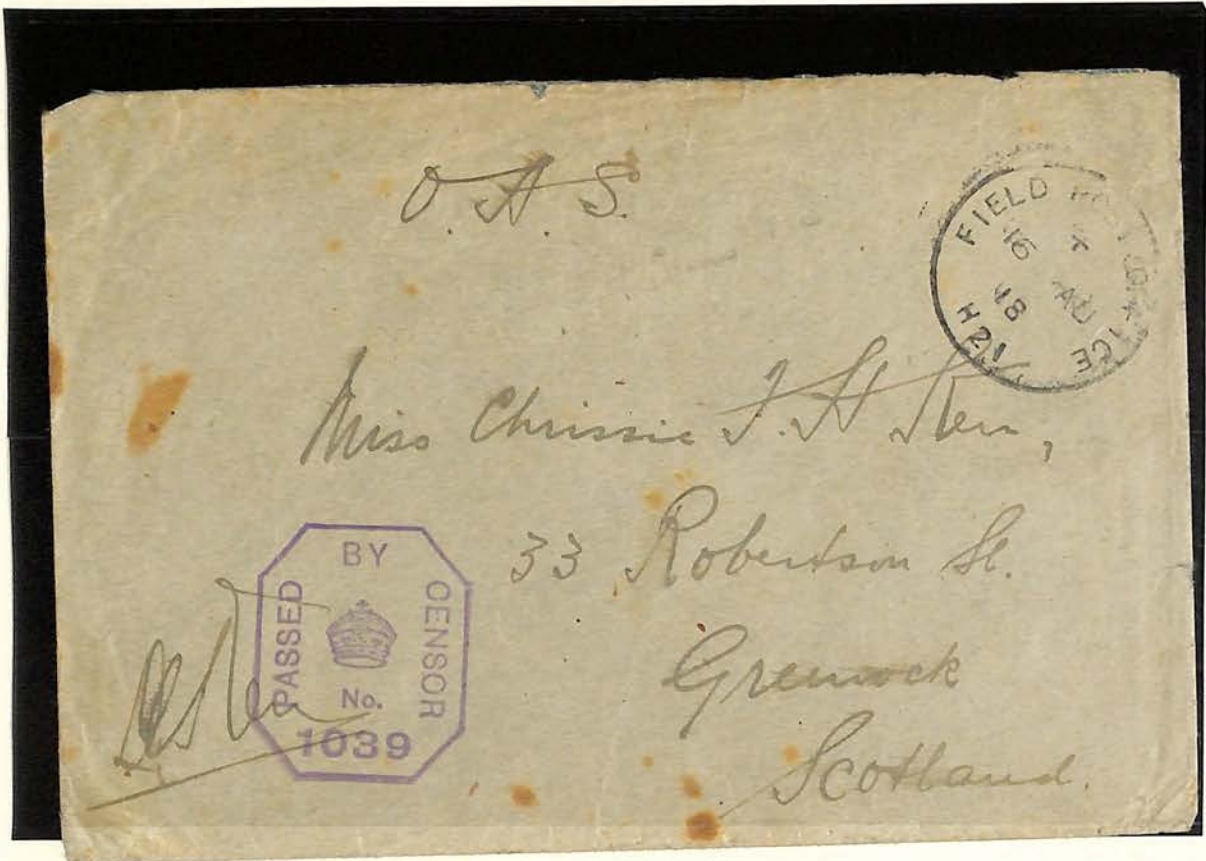 O. A. S.
FIELD POST OFFICE
16 AU
18
H21
Miss Chrissie J. H. Kerr,
33 Robertson St.
Greenock
Scotland.
PASSED BY CENSOR
No.
1039